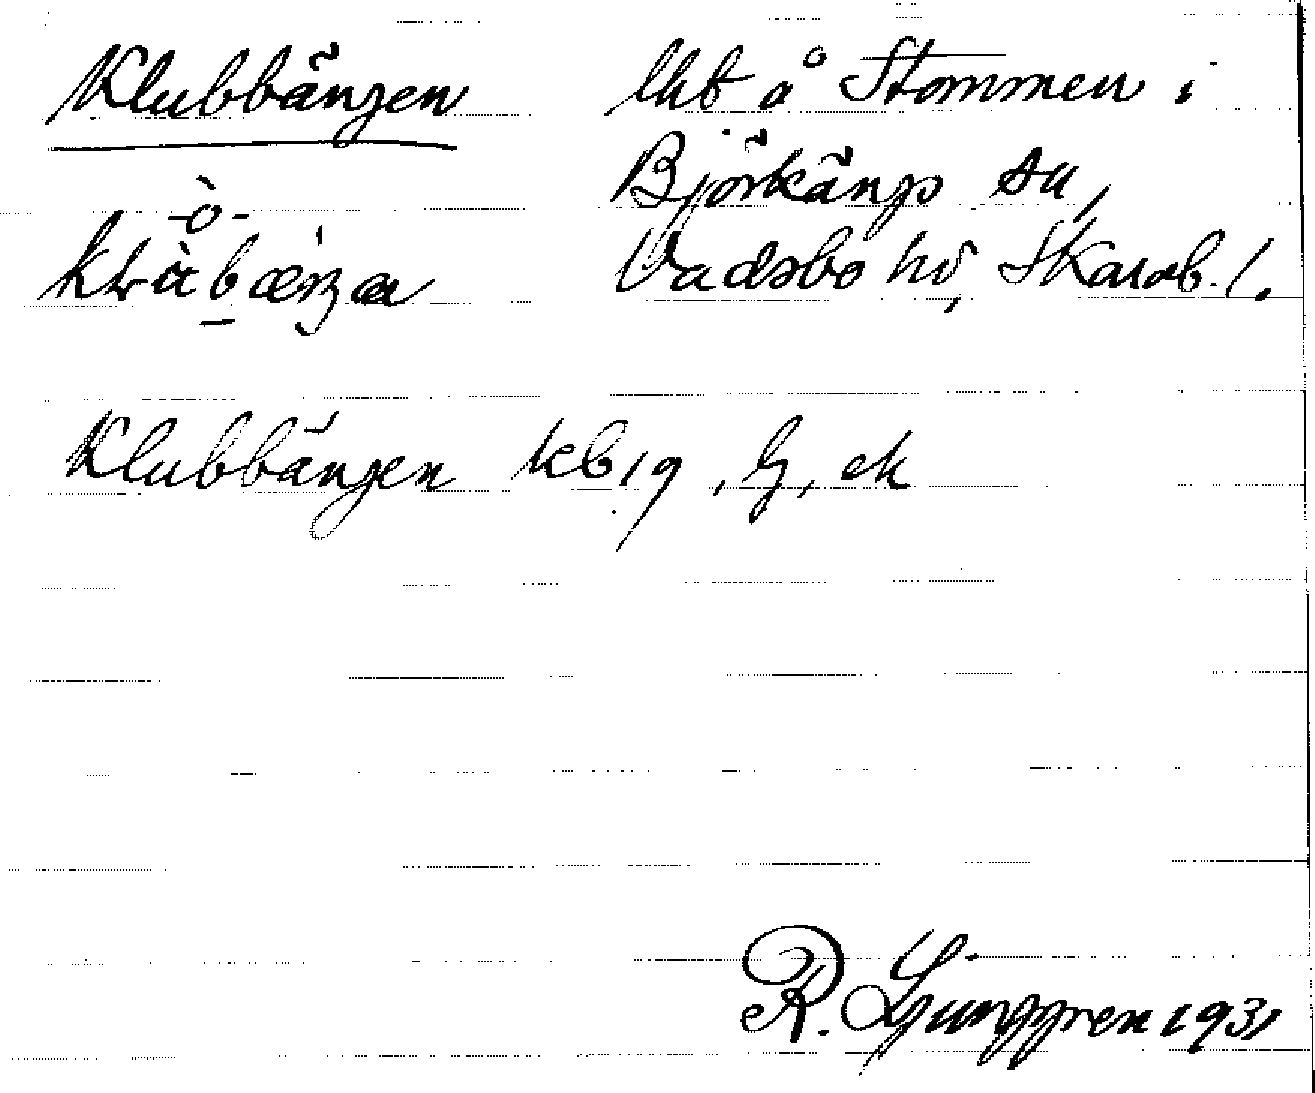 Klubbängen
lht å Stommen i
Björkängs sn,
Vadsbo hd, Skarab. l.
Klubbängen kb 19, G, ek
R. Ljunggren 1931